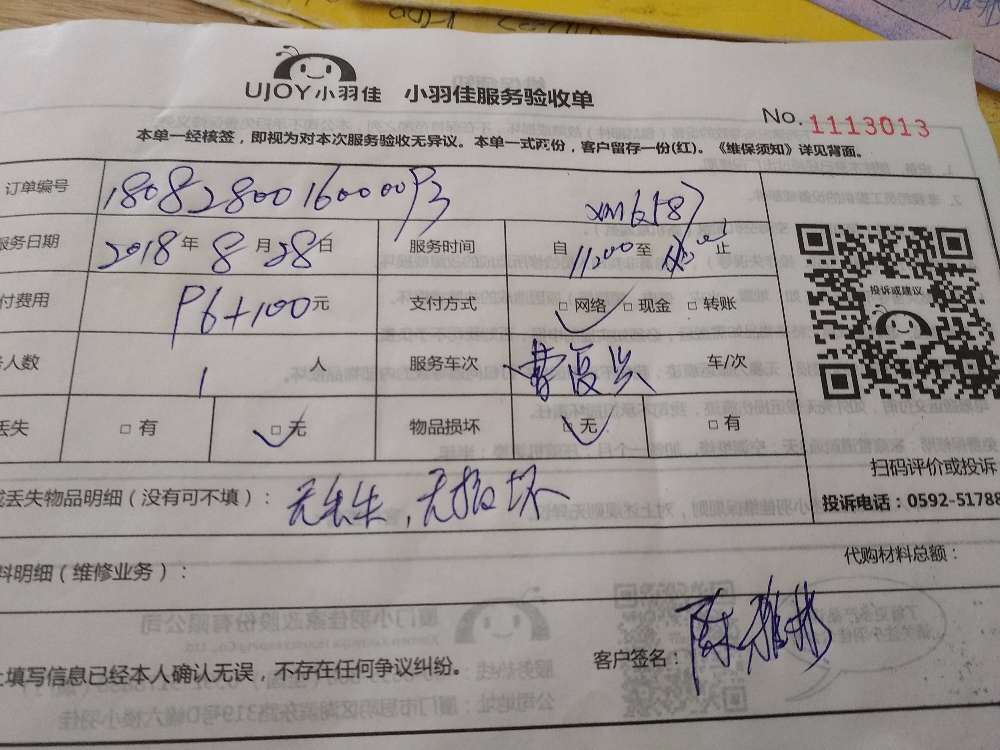 UJOY小羽佳 小羽佳服务验收单
No. 1113013
本单一经核签，即视为对本次服务验收无异议。本单一式两份，客户留存一份(红)。《维保须知》详见背面。
订单编号 18082800160000 xm6587
服务日期 2018年8月28日 服务时间 自11:00至 止
付费用 P6+100元 支付方式 □网络 □现金 □转账
人数 1人 服务车次 曹复兴 车/次
丢失 □有 □无 物品损坏 □无 □有
投诉或建议
扫码评价或投诉
丢失物品明细（没有可不填）：无丢失，无损坏
投诉电话：0592-51788
代购材料总额：
料明细（维修业务）：
填写信息已经本人确认无误，不存在任何争议纠纷。
客户签名：陈雅彬